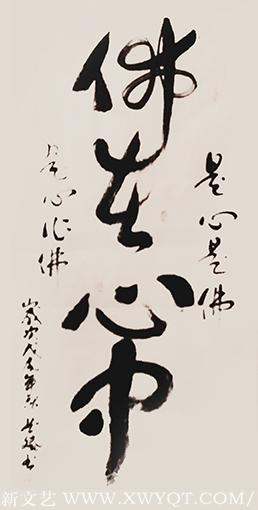 是心是佛
佛在心中
是心作佛
歲次戊子年秋 書
新文艺 WWW.XWYQT.COM/